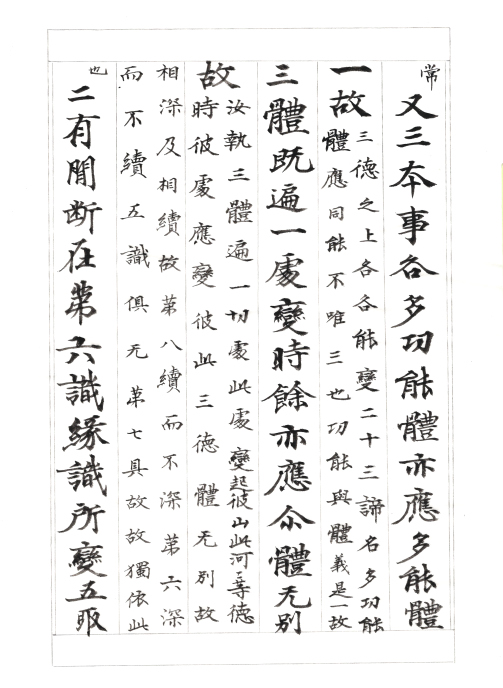 常
又三本事各多功能體亦應多能體
一故
三德之上各各能變二十三諦名多功能
體應同能不唯三也功能與體義是一故
三體既遍一處變時餘亦應尒體无別
故
汝執三體遍一切處此處變起彼山此河等德
時彼處應變彼此三德體无別故
相深及相續故第八續而不深第六深
而不續五識俱无第七具故故獨依此
也
二有間断在第六識緣識所變五取